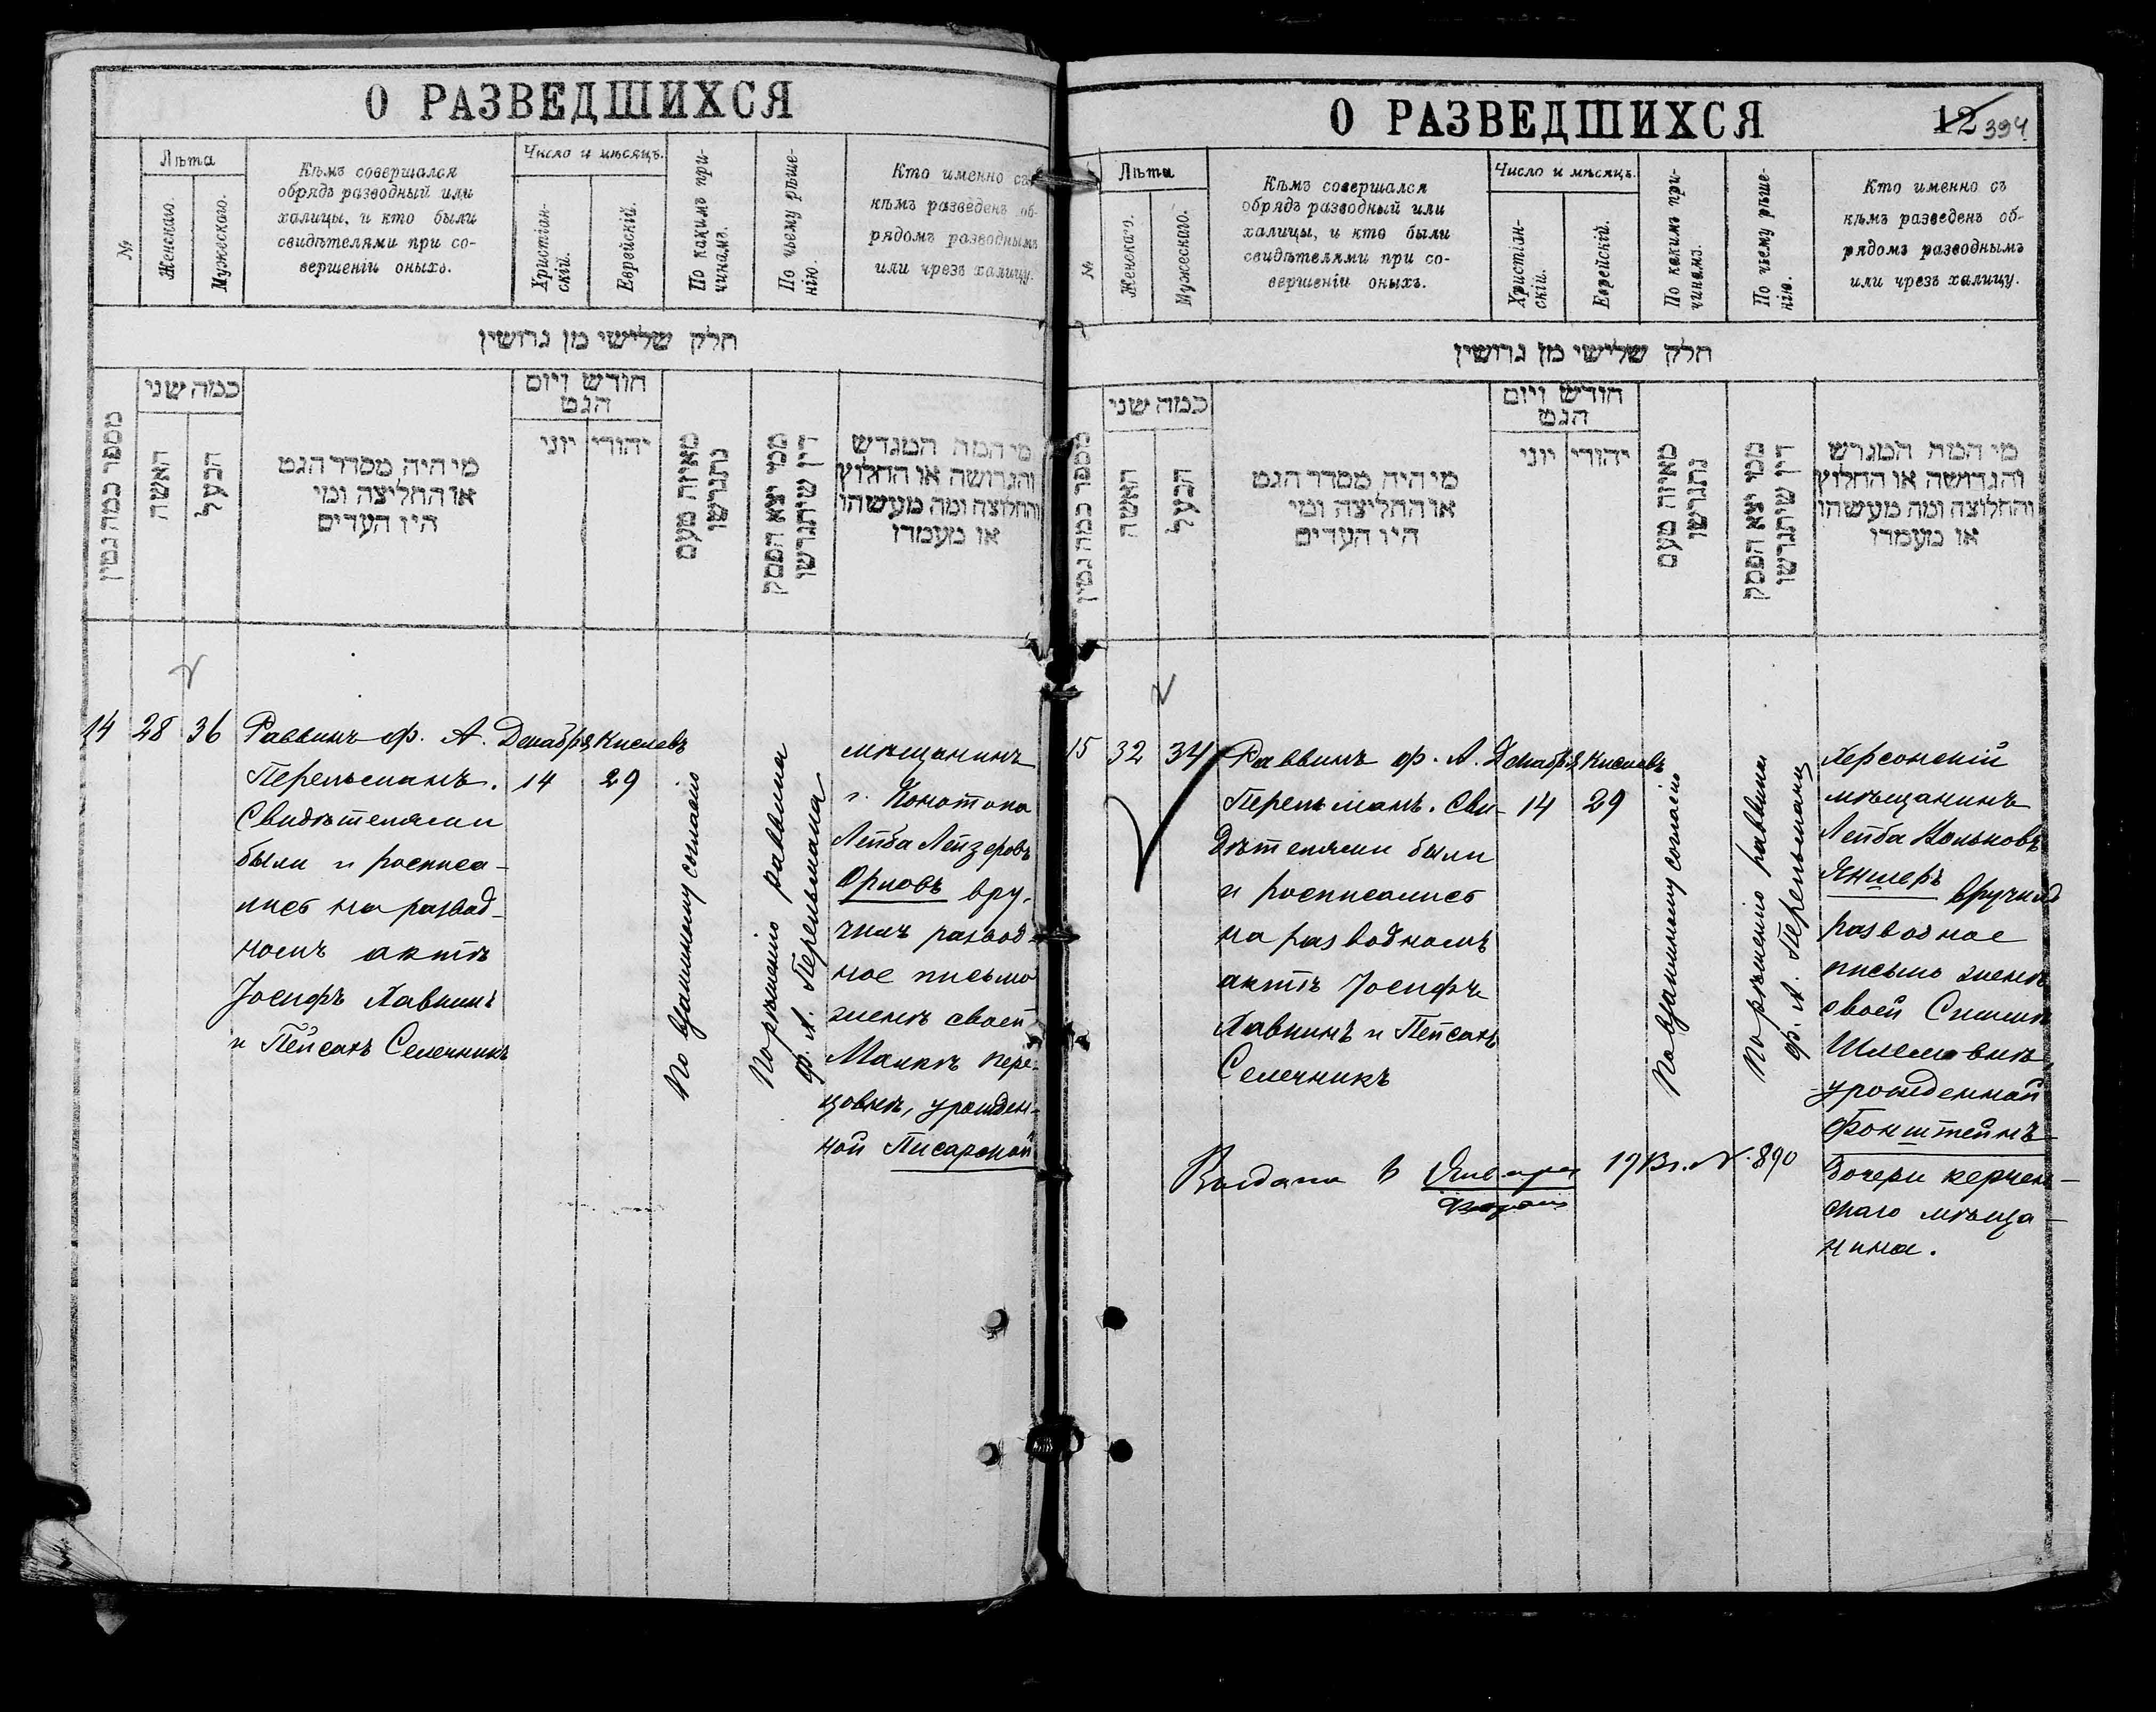 О РАЗВЕДШИХСЯ
№
Лѣта
Женскаго.
Мужескаго.
Кѣмъ совершался
обрядъ разводный или
халицы, и кто были
свидѣтелями при со-
вершеніи оныхъ.
Число и мѣсяцъ.
Христіан-
скій.
Еврейскій.
По какимъ при-
чинамъ.
По чьему рѣше-
нію.
Кто именно съ
кѣмъ разведенъ об-
рядомъ разводнымъ
или чрезъ халицу.
חלק שלישי מן גרושין
מספר כמה גטין
כמה שני
האשה
הבעל
מי היה מסדר הגט
או החליצה ומי
היו העדים
חודש ויום
הגט
יהודי
יוני
מאיזה טעם
נתגרשו
ממי יצא הפסק
דין שיתגרשו
מי המה המגרש
והגרושה או החלוץ
והחלוצה ומה מעשהו
או מעמדו
14
28
36
Раввинъ Ф. А.
Перельманъ.
Свидѣтелями
были и росписа-
лись на развод-
номъ актѣ
Іосифъ Хавкинъ
и Пейсахъ Селечникъ
Декабря
14
Кислевъ
29
По взаимному согласію
По рѣшенію раввина
Ф. А. Перельмана
мѣщанинъ
г. Конотопа
Лейба Лейзеровъ
Орловъ вру-
чилъ развод-
ное письмо
женѣ своей
Малкѣ Пере-
цовнѣ, урожден-
ной Писарской
О РАЗВЕДШИХСЯ
12
394
№
Лѣта
Женскаго.
Мужескаго.
Кѣмъ совершался
обрядъ разводный или
халицы, и кто были
свидѣтелями при со-
вершеніи оныхъ.
Число и мѣсяцъ.
Христіан-
скій.
Еврейскій.
По какимъ при-
чинамъ.
По чьему рѣше-
нію.
Кто именно съ
кѣмъ разведенъ об-
рядомъ разводнымъ
или чрезъ халицу.
חלק שלישי מן גרושין
מספר כמה גטין
כמה שני
האשה
הבעל
מי היה מסדר הגט
או החליצה ומי
היו העדים
חודש ויום
הגט
יהודי
יוני
מאיזה טעם
נתגרשו
ממי יצא הפסק
דין שיתגרשו
מי המה המגרש
והגרושה או החלוץ
והחלוצה ומה מעשהו
או מעמדו
15
32
34
Раввинъ Ф. А.
Перельманъ. Сви-
дѣтелями были
и росписались
на разводномъ
актѣ Іосифъ
Хавкинъ и Пейсахъ
Селечникъ
Декабря
14
Кислевъ
29
По взаимному согласію
По рѣшенію раввина
Ф. А. Перельмана
Херсонскій
мѣщанинъ
Лейба Вольковъ
Янклеръ вручилъ
разводное
письмо женѣ
своей Симѣ
Шлемовнѣ,
урожденной
Фонштейнъ
дочери керчен-
скаго мѣща-
нина.
Выдана 8 Января 1913 г. № 890